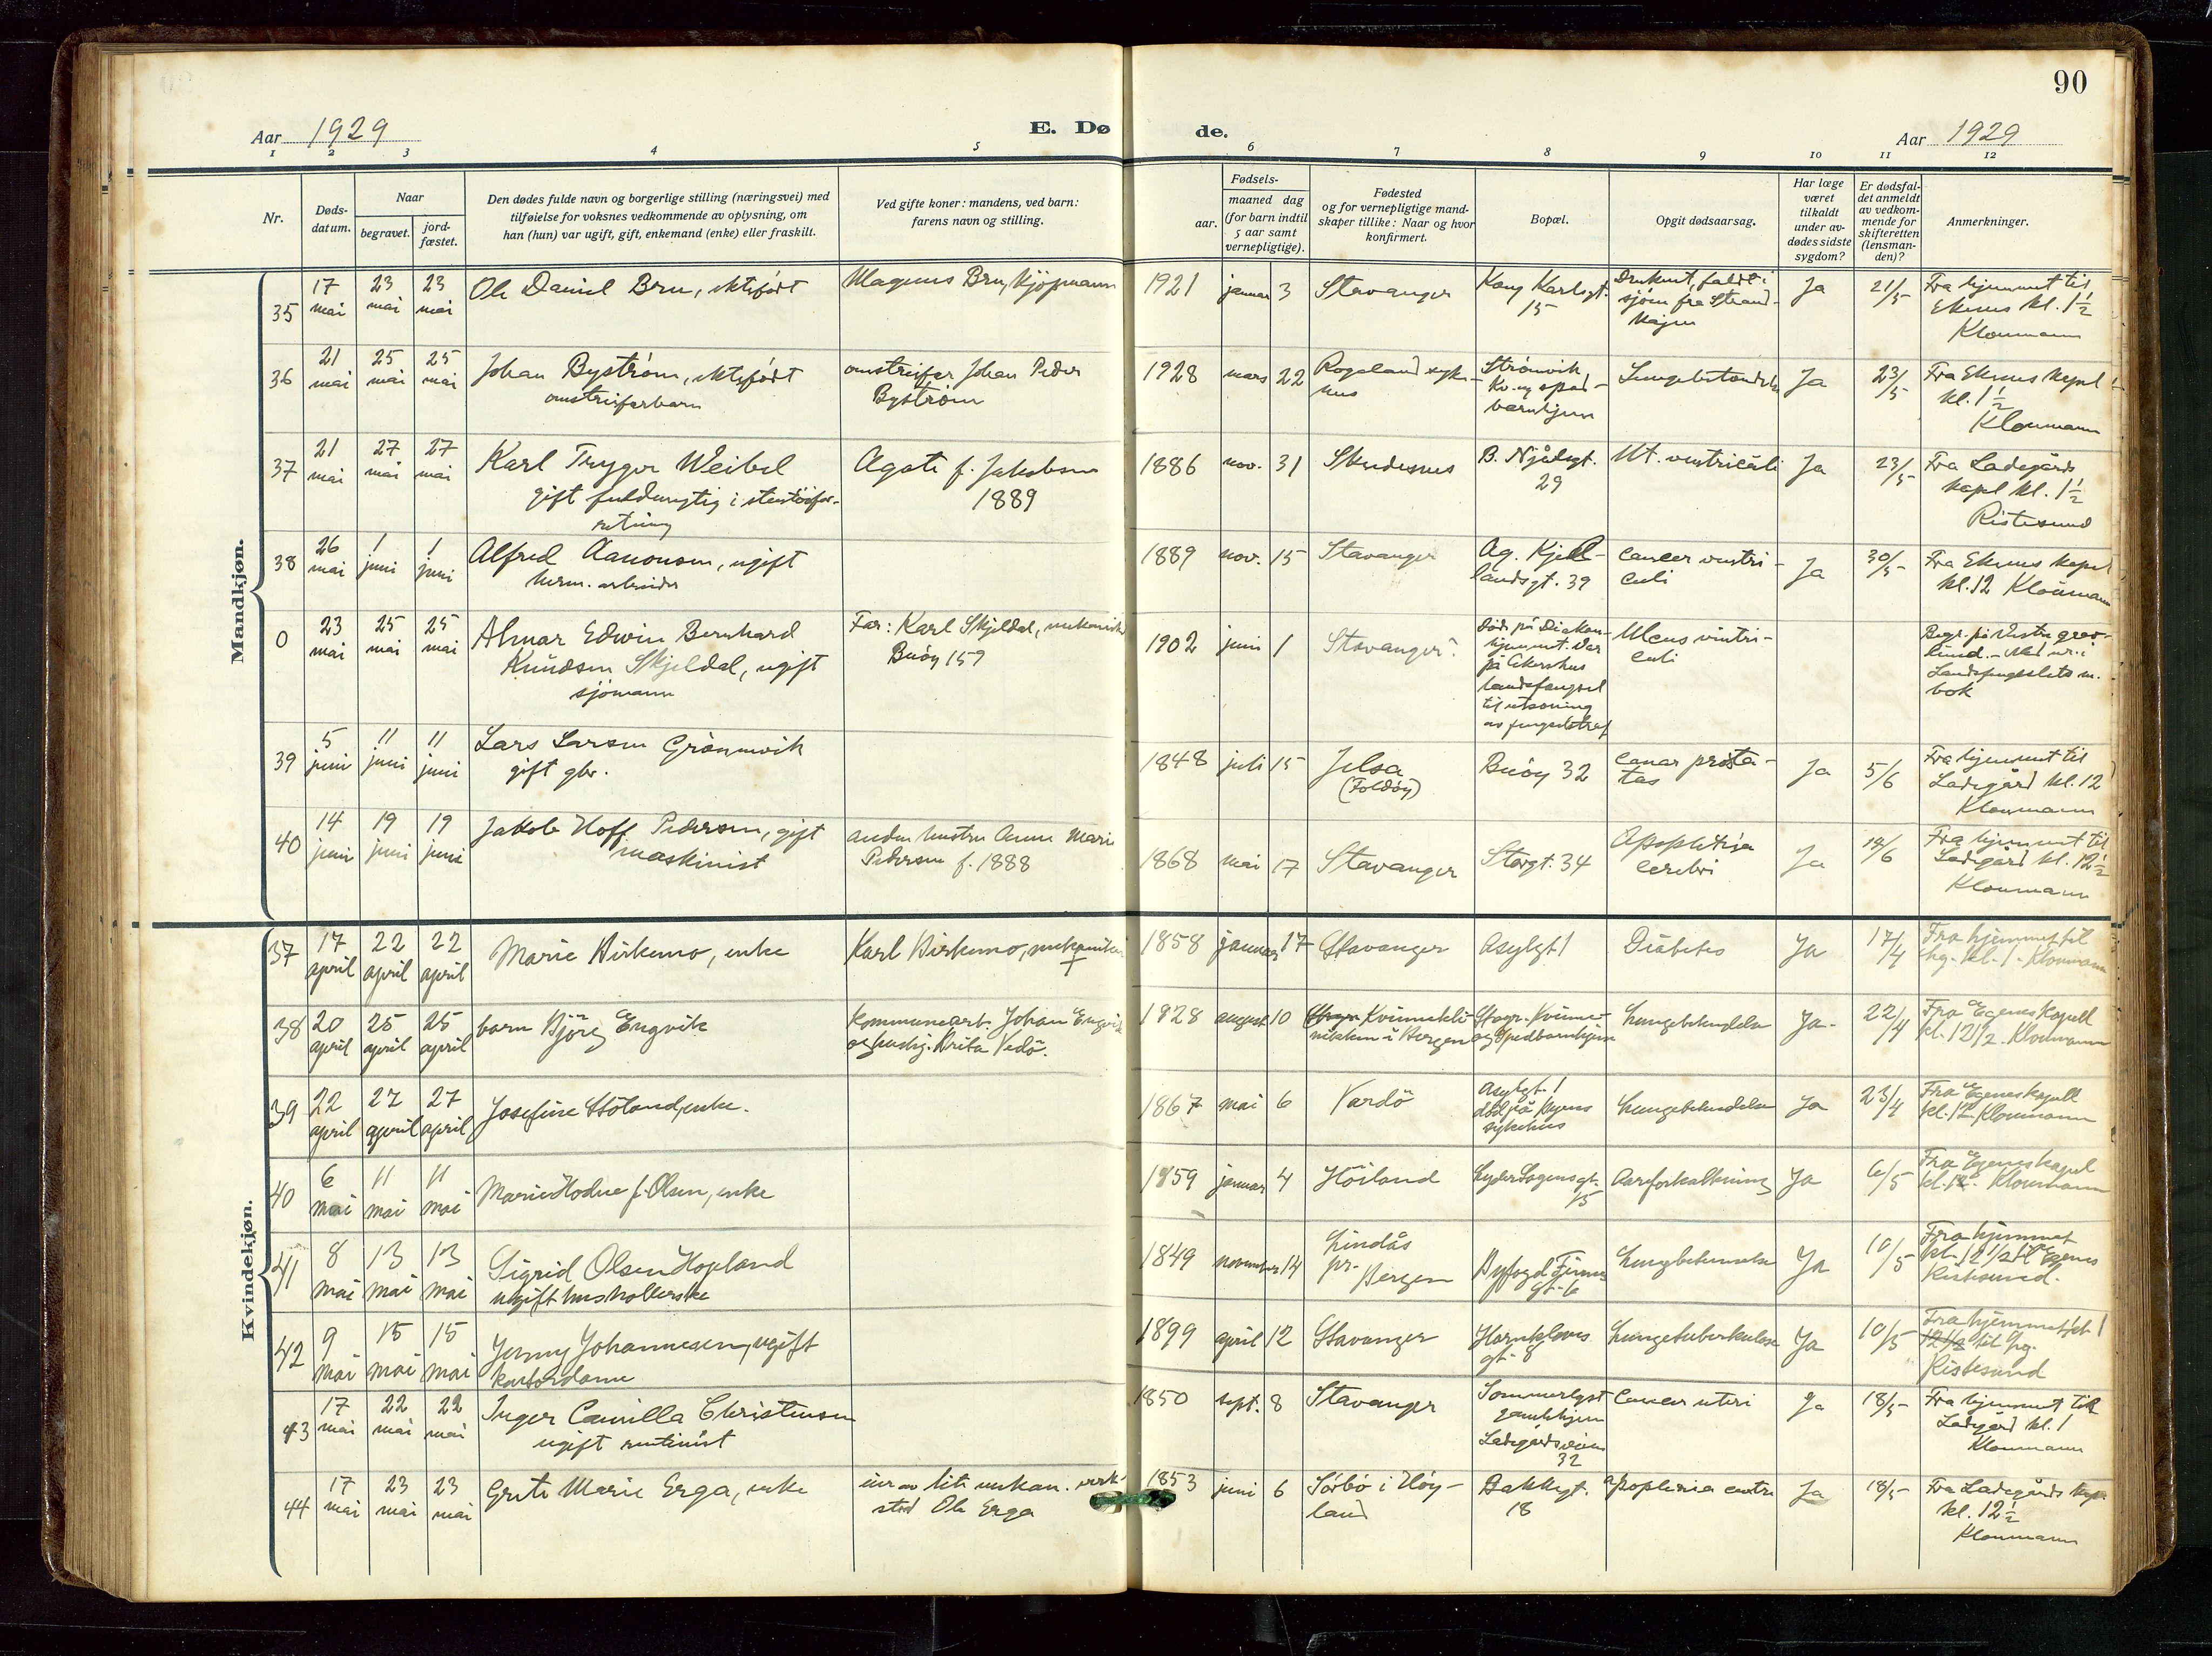 90
Aar 1929
E. Dø
de.
Aar 1929
1 2 3 4 5 6 7 8 9 10 11 12
Nr.
Døds-
datum.
Naar
begravet.
jord-
fæstet.
Den dødes fulde navn og borgerlige stilling (næringsvei) med
tilføielse for voksnes vedkommende av oplysning, om
han (hun) var ugift, gift, enkemand (enke) eller fraskilt.
Ved gifte koner: mandens, ved barn:
farens navn og stilling.
Fødsels-
aar.
maaned dag
(for barn indtil
5 aar samt
vernepligtige).
Fødested
og for vernepligtige mand-
skaper tillike: Naar og hvor
konfirmert.
Bopæl.
Opgit dødsaarsag.
Har læge
været
tilkaldt
under av-
dødes sidste
sygdom?
Er dødsfal-
det anmeldt
av vedkom-
mende for
skifteretten
(lensman-
den)?
Anmerkninger.
Mandkjøn.
35
17
mai
23
mai
23
mai
Ole Daniel Bru, ektefødt
Magnus Bru, kjøpmann
1921 januar 3 Stavanger
Kong Karlsgt.
15
Druknet, faldt i
sjøen fra Strand-
kajen
Ja
21/5
Fra hjemmet til
Ekenes kl. 1½
Kloumann
36
21
mai
25
mai
25
mai
Johan Byström, ektefødt
omstreiferbarn
omstreifer Johan Peder
Byström
1928 mars 22
Rogaland syke-
hus
Strømvik
kv. og sped-
barnhjem
Lungebetændelse
Ja
23/5
Fra Ekenes kapel
kl. 1½
Kloumann
37
21
mai
27
mai
27
mai
Karl Trygve Weibel
gift fuldmegtig i stentöifor-
retning
Agate f. Jakobsen
1889
1886 nov. 31 Skudesnes
B. Njålsgt.
29
Ut. ventriculi
Ja
23/5
Fra Ladegårds
kapel kl. 1½
Ristesund
38
26
mai
1
juni
1
juni
Alfred Aanonsen, ugift
herm. arbeider
1889 nov. 15 Stavanger
Ag. Kjel-
landsgt. 39
cancer ventri-
culi
Ja
30/5
Fra Ekenes kapel
kl. 12 Kloumann
0
23
mai
25
mai
25
mai
Almar Edwin Bernhard
Knudsen Skjeldal, ugift
sjömann
Far: Karl Skjeldal, mekaniker
Buöy 159
1902 juni 1 Stavanger
Död på Diakon-
hjemmet. Var
på Akershus
landsfengsel
til utsoning
av fengselstraf
Ulcus ventri-
culi
Begr. på Vestre grav-
lund. - Med nr. i
Landsfengslets m.
bok
39
5
juni
11
juni
11
juni
Lars Larsen Grönnevik
gift gbr.
1848 juli 15
Jelsa
(Foldöy)
Buöy 32
cancer prosta-
tas
Ja
5/6
Fra hjemmet til
Ladegård kl. 12
Kloumann
40
14
juni
19
juni
19
juni
Jakob Hoff Pedersen, gift
maskinist
anden hustru Anne Marie
Pedersen f. 1888
1868 mai 17 Stavanger
Storgt. 34
Apoplexia
cerebri
Ja
18/6
Fra hjemmet til
Ladegård kl. 12½
Kloumann
Kvindekjøn.
37
17
april
22
april
22
april
Marie Birkemo, enke
Karl Birkemo, mekaniker
†
1858 januar 17 Stavanger
Asylgt 1
Diabetes
Ja
17/4
Fra hjemmet til
hg. kl. 1. Kloumann
38
20
april
25
april
25
april
barn Björg Engvik
kommunearb. Johan Engvik
og hustr. Brita Vedö.
1928 august 10
Kvinnekli-
nikken i Bergen
Stvgr. Kvinne-
og Spedbarnhjem
Lungebetendelse
Ja
22/4
Fra Egenes Kapell
kl. 12 1/2. Kloumann
39
22
april
27
april
27
april
Josefine Stöland, enke.
1867 mai 6 Vardö
Asylgt. 1
död på Byens
sykehus
Lungebetendelse
Ja
23/4
Fra Egenes kapell
kl. 12 Kloumann
40
6
mai
11
mai
11
mai
Marie Hodne f. Olsen, enke
1859 januar 4 Höiland
Lyder Sagens gt.
15
Aareforkalkning
Ja
6/5
Fra Egenes kapel
kl. 12. Kloumann
41
8
mai
13
mai
13
mai
Sigrid Olsen Hopland
ugift husholderske
1849 november 14
Lindås
pr.
Bergen
Byfogd Firmas
gt. 6
Lungebetennelse
Ja
10/5
Fra hjemmet
kl. 12 1/2 til Egenes
Ristesund.
42
9
mai
15
mai
15
mai
Jenny Johannesen, ugift
kontordame
1899 april 12 Stavanger
Hornkloves
gt. 8
Lungetuberkulose
Ja
10/5
Fra hjemmet kl. 1
12 1/2 til hg.
Ristesund
43
17
mai
22
mai
22
mai
Inger Camilla Christensen
ugift rentenist
1850 sept. 8 Stavanger
Sommerlyst
gamlehjem
Ladegårdsveien
32
Cancer uteri
Ja
18/5
Fra hjemmet til
Ladegård kl. 1
Kloumann
44
17
mai
23
mai
23
mai
Grete Marie Erga, enke
eier av lite mekan. verk-
sted Ole Erga
1853 juni 6
Sörbö i Höy-
land
Bakkegt.
18
apoplexia cerebri
Ja
18/5
Fra Ladegårds kapel
kl. 12½
Kloumann